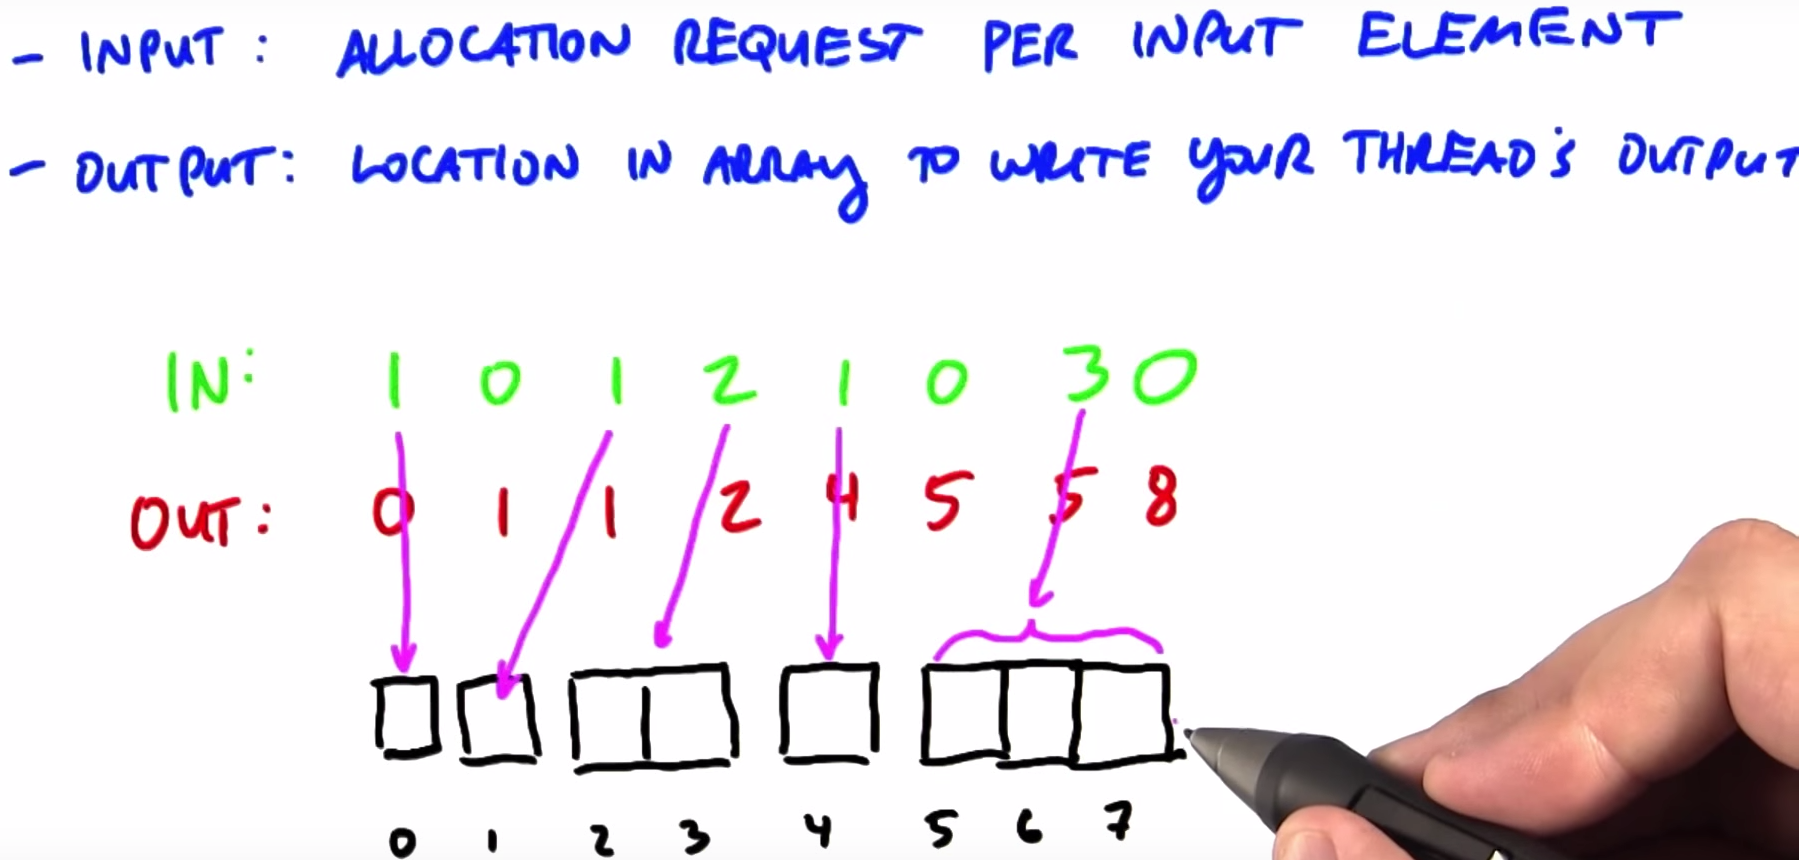 - INPUT: ALLOCATION REQUEST PER INPUT ELEMENT
- OUTPUT: LOCATION IN ARRAY TO WRITE YOUR THREAD'S OUTPUT
IN: 1 0 1 2 1 0 3 0
OUT: 0 1 1 2 4 5 5 8
0 1 2 3 4 5 6 7